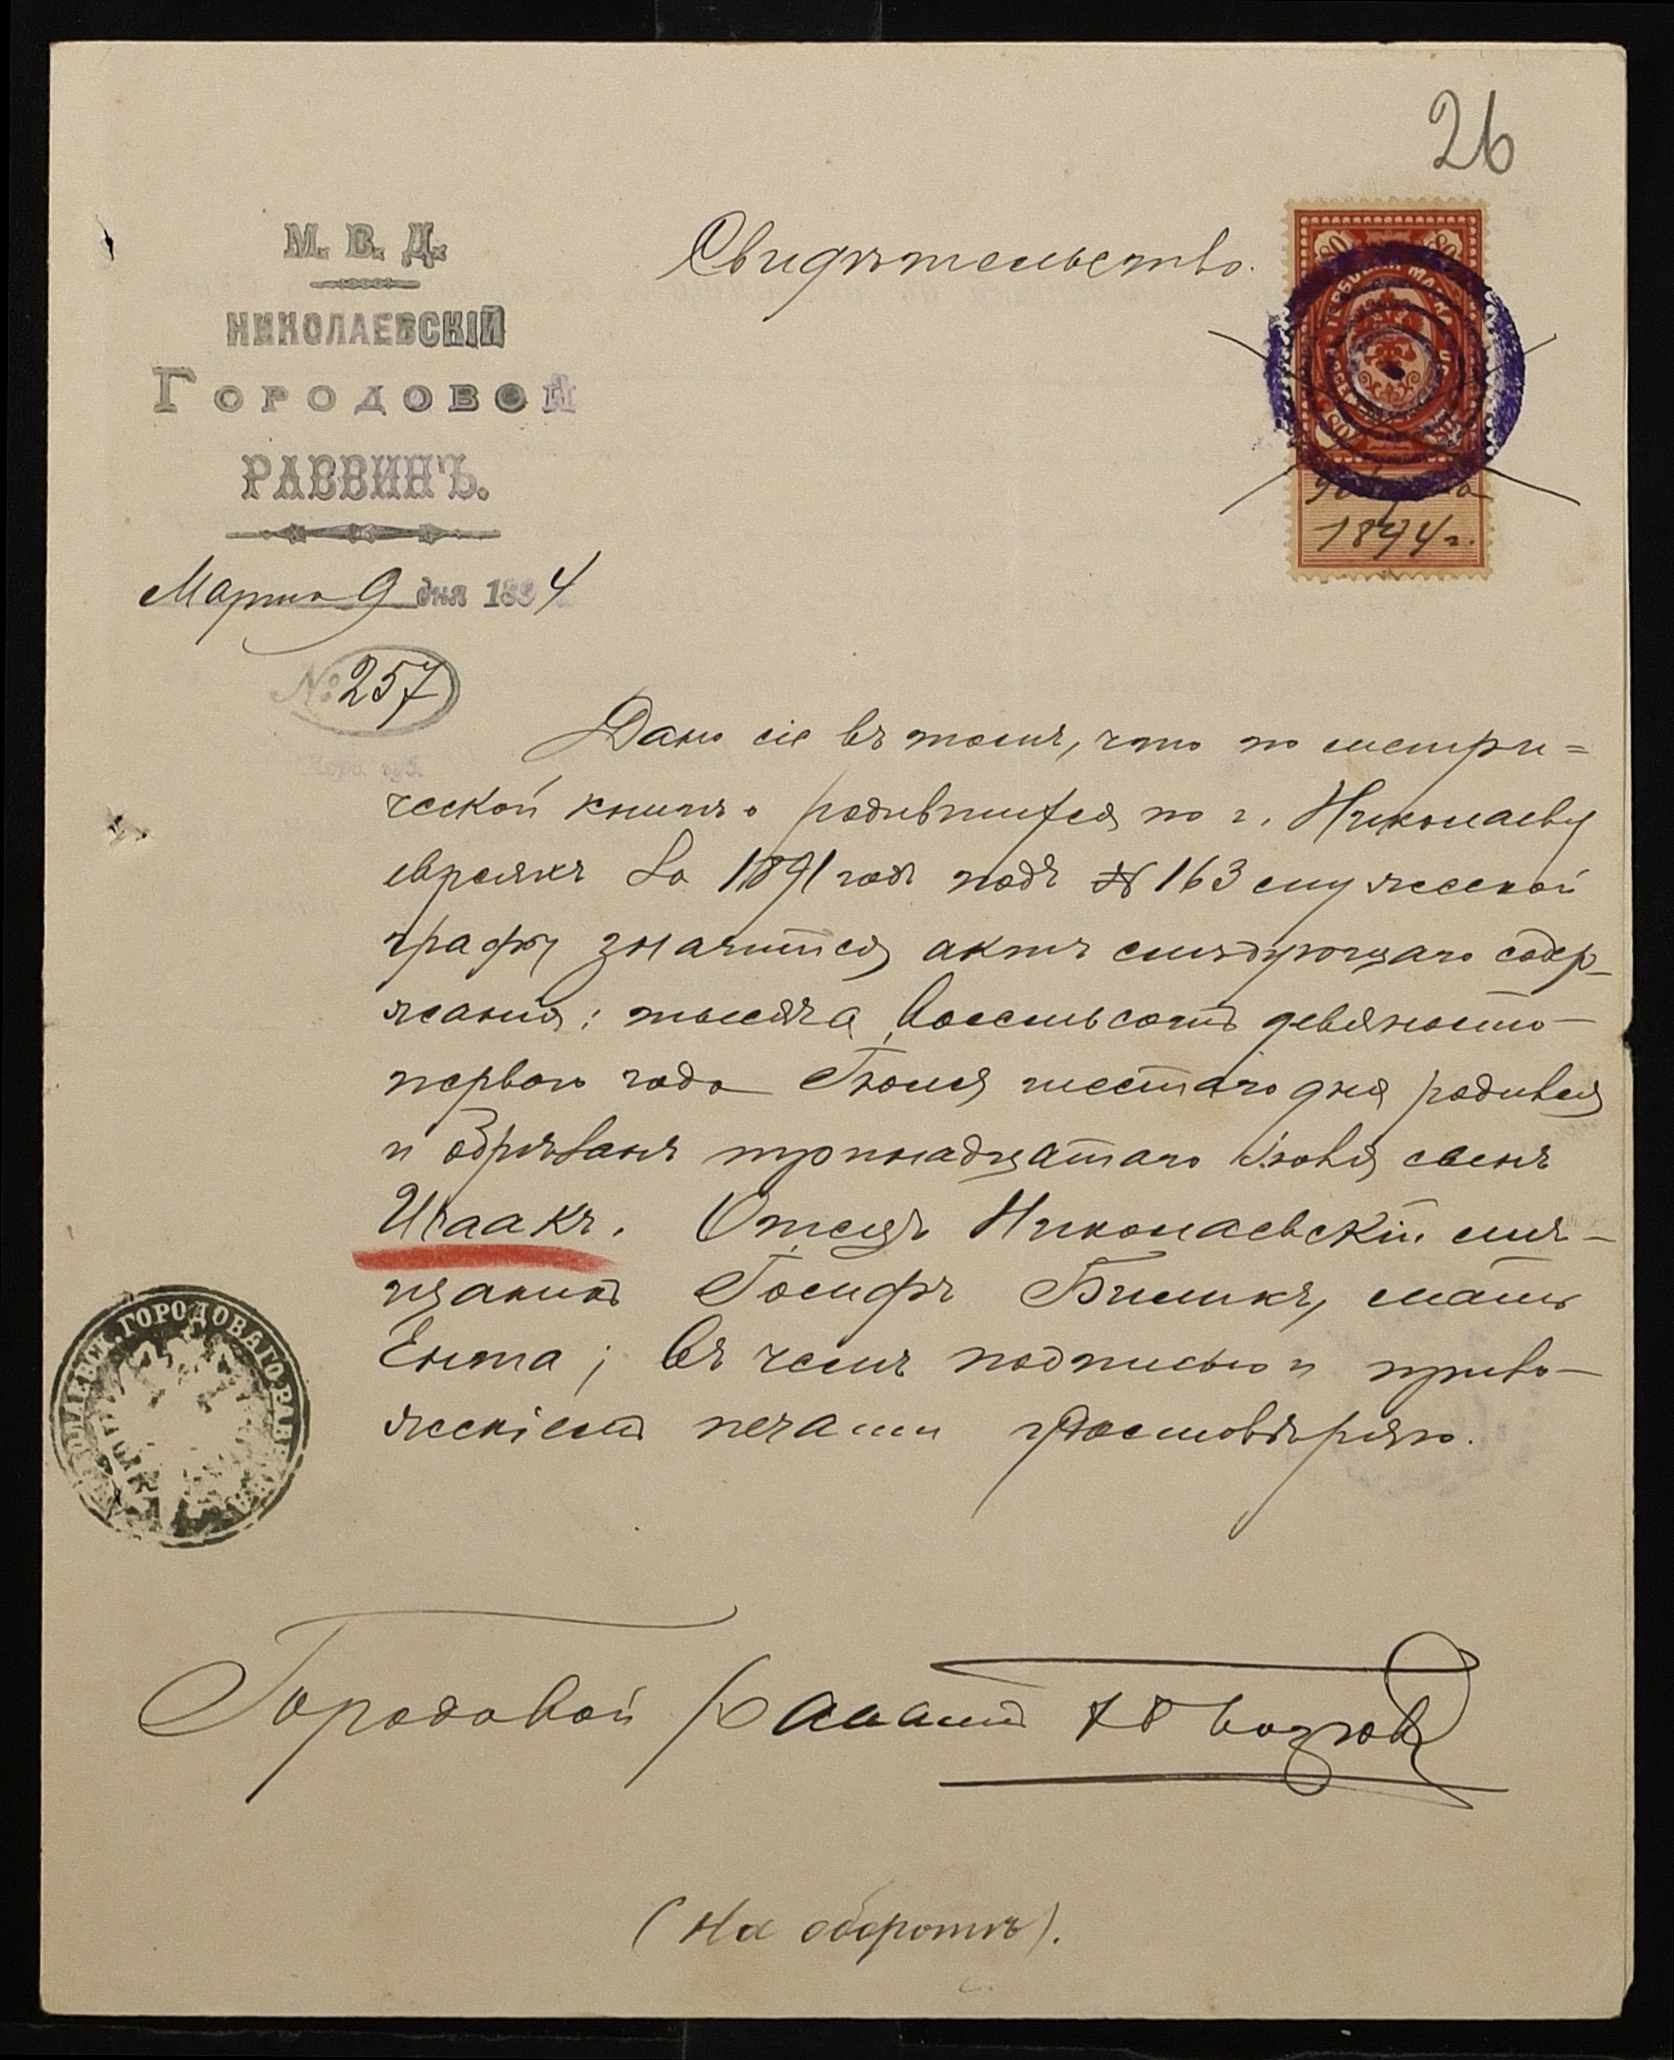 26
М. В. Д.
НИКОЛАЕВСКІЙ
ГОРОДОВОЙ
РАВВИНЪ.
Марта 9 дня 1894
№ 257
Свидѣтельство.
80 80
ГЕРБОВАЯ МАРКА
80
1894 г.
Дано сіе въ томъ, что по метри=
ческой книгѣ о родившихся по г. Николаеву
евреяхъ за 1891 годъ подъ № 163 мужеской
графы значится актъ слѣдующаго содер-
жанія: тысяча восемьсотъ девяносто
перваго года Іюня шестаго дня родился
и обрѣзанъ тринадцатаго Іюня сынъ
Исаакъ. Отецъ Николаевскій мѣ-
щанинъ Іосифъ Биликъ, мать
Ента; въ чемъ подписью и прило-
женіемъ печати удостовѣряю.
НИКОЛАЕВСК. ГОРОДОВАГО РАВВИНА
Городовой Раввинъ
(На оборотѣ).